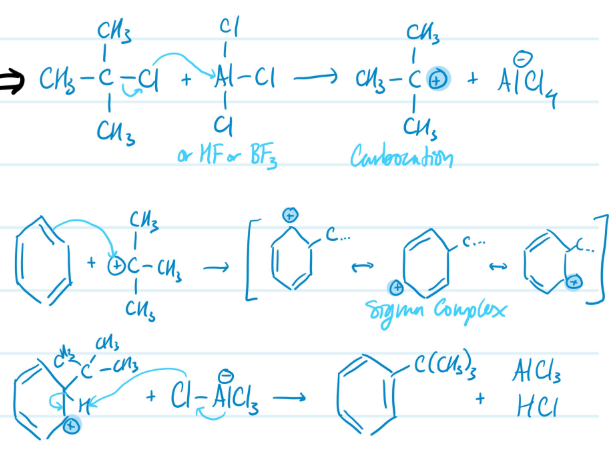 CH₃ Cl
⇒ CH₃-C-Cl + Al-Cl → CH₃-C⊕ + AlCl₄ ⊖
CH₃
CH₃ Cl CH₃
or HF or BF₃ Carbocation
CH₃
+ ⊕C-CH₃ → [ ⊕ C... ↔ ⊕ C... ↔ C... ⊕ ]
CH₃
Sigma Complex
CH₃ CH₃
C-CH₃ H ⊕ + Cl-AlCl₃ ⊖ → C(CH₃)₃ + AlCl₃
HCl